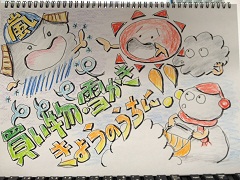 嵐
買い物・雪かき
きょうのうちに!!